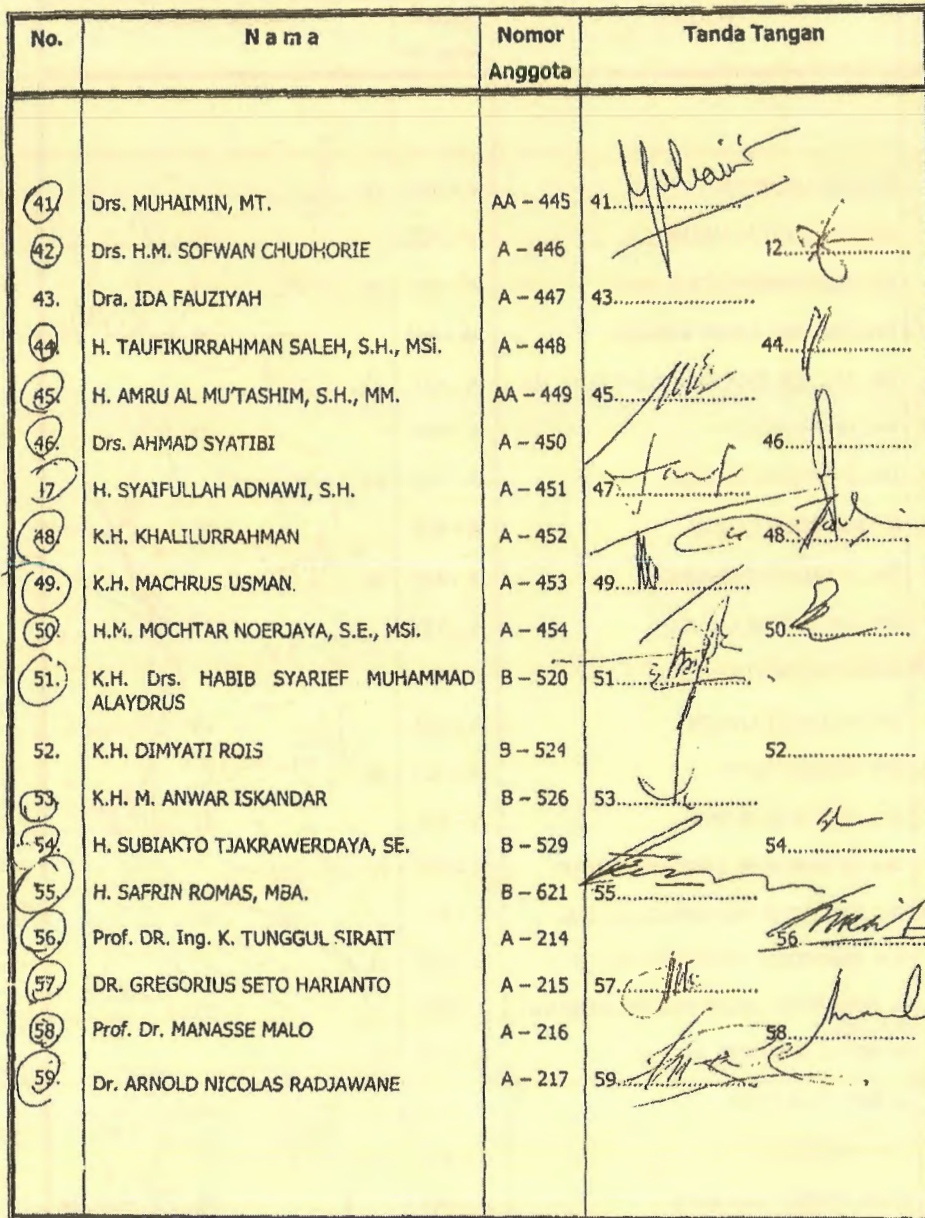 No. Nama Nomor Anggota Tanda Tangan
41. Drs. MUHAIMIN, MT. AA – 445 41....................
42. Drs. H.M. SOFWAN CHUDHORIE A – 446 12....................
43. Dra. IDA FAUZIYAH A – 447 43....................
44. H. TAUFIKURRAHMAN SALEH, S.H., MSi. A – 448 44....................
45. H. AMRU AL MU'TASHIM, S.H., MM. AA – 449 45....................
46. Drs. AHMAD SYATIBI A – 450 46....................
17 H. SYAIFULLAH ADNAWI, S.H. A – 451 47....................
48. K.H. KHALILURRAHMAN A – 452 48....................
49. K.H. MACHRUS USMAN. A – 453 49....................
50. H.M. MOCHTAR NOERJAYA, S.E., MSi. A – 454 50....................
51. K.H. Drs. HABIB SYARIEF MUHAMMAD B – 520 51....................
ALAYDRUS
52. K.H. DIMYATI ROIS B – 524 52....................
53. K.H. M. ANWAR ISKANDAR B – 526 53....................
54. H. SUBIAKTO TJAKRAWERDAYA, SE. B – 529 54....................
55. H. SAFRIN ROMAS, MBA. B – 621 55....................
56. Prof. DR. Ing. K. TUNGGUL SIRAIT A – 214 56....................
57. DR. GREGORIUS SETO HARIANTO A – 215 57....................
58. Prof. Dr. MANASSE MALO A – 216 58....................
59. Dr. ARNOLD NICOLAS RADJAWANE A – 217 59....................